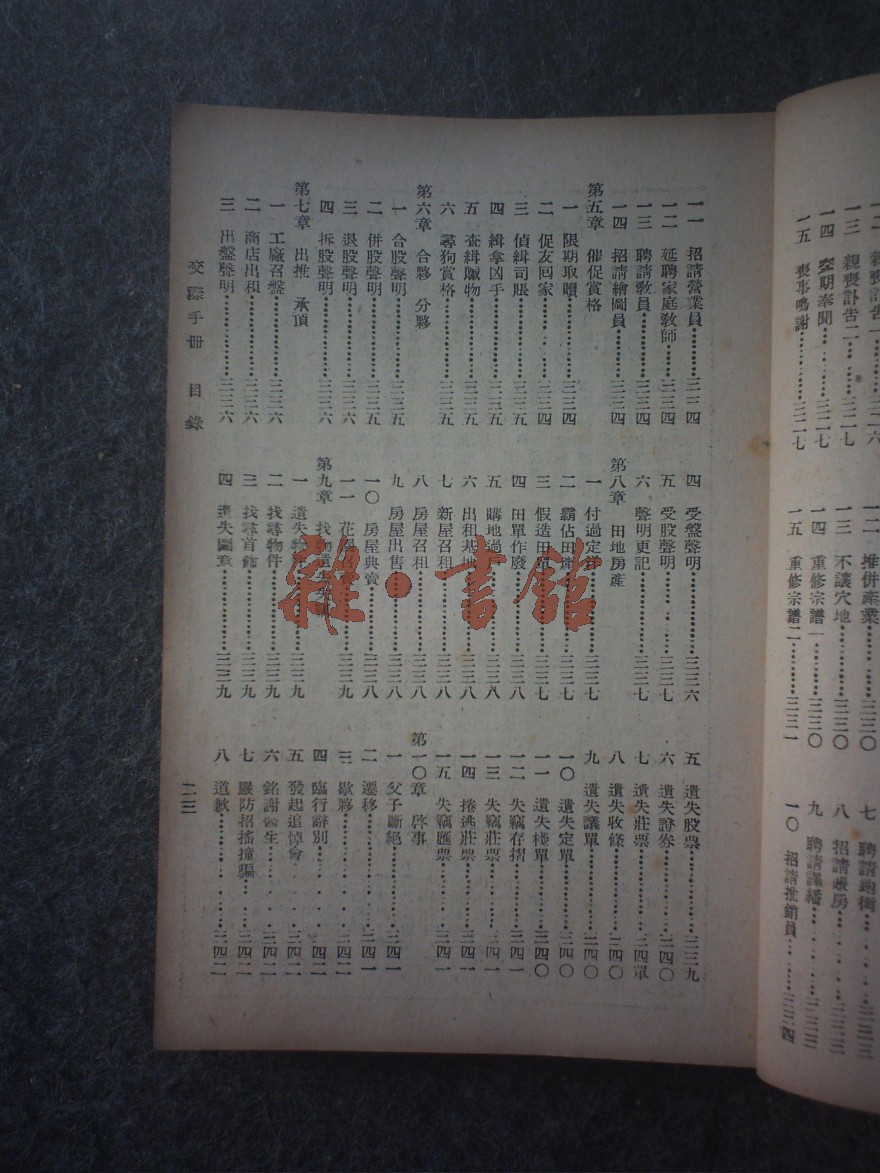 一二 親喪訃告一
一三 親喪訃告二……三二七
一四 卒期奉聞……三二七
一五 喪事鳴謝……三二七
一二 推併產業……三三〇
一三 不讓穴地……三三〇
一四 重修宗譜一……三三〇
一五 重修宗譜二……三三一
七 聘請跑街……三三三
八 招請賬房……三三三
九 聘請課繙……三三三
一〇 招請推銷員……三三四
一一 招請營業員……三三四
一二 延聘家庭教師……三三四
一三 聘請教員……三三四
一四 招請繪圖員……三三四
第五章 催促賞格
一 限期取贖……三三四
二 促友回家……三三四
三 偵緝司賬……三三五
四 緝拿凶手……三三五
五 查緝贓物……三三五
六 尋狗賞格……三三五
第六章 合夥 分夥
一 合股聲明……三三五
二 併股聲明……三三五
三 退股聲明……三三六
四 拆股聲明……三三六
第七章 出推 承頂
一 工廠召盤……三三六
二 商店出租……三三六
三 出盤聲明……三三六
四 受盤聲明……三三六
五 受股聲明……三三七
六 聲明更記……三三七
第八章 田地房產
一 付過定洋……三三七
二 霸佔田產……三三七
三 假造田單……三三七
四 田單作廢……三三八
五 購地過戶……三三八
六 出租基地……三三八
七 新屋召租……三三八
八 房屋召租……三三八
九 房屋出售……三三八
一〇 房屋典賣……三三八
一一 花園……三三九
第九章 找物遺失
一 遺失物件……三三九
二 找尋物件……三三九
三 找尋首飾……三三九
四 遺失圖章……三三九
五 遺失股票……三三九
六 遺失證券……三四〇
七 遺失莊票……三四單
八 遺失收條……三四〇
九 遺失議單……三四〇
一〇 遺失定單……三四〇
一一 遺失棧單……三四〇
一二 失竊存摺……三四一
一三 失竊莊票……三四一
一四 捲逃莊票……三四一
一五 失竊匯票……三四一
第一〇章 啓事
一 父子斷絕……三四一
二 遷移……三四一
三 歇夥……三四二
四 臨行辭別……三四二
五 發起追悼會……三四二
六 銘謝醫生……三四二
七 嚴防招搖撞騙……三四二
八 道歉……三四二
交際手冊 目錄
二三
雜·書館